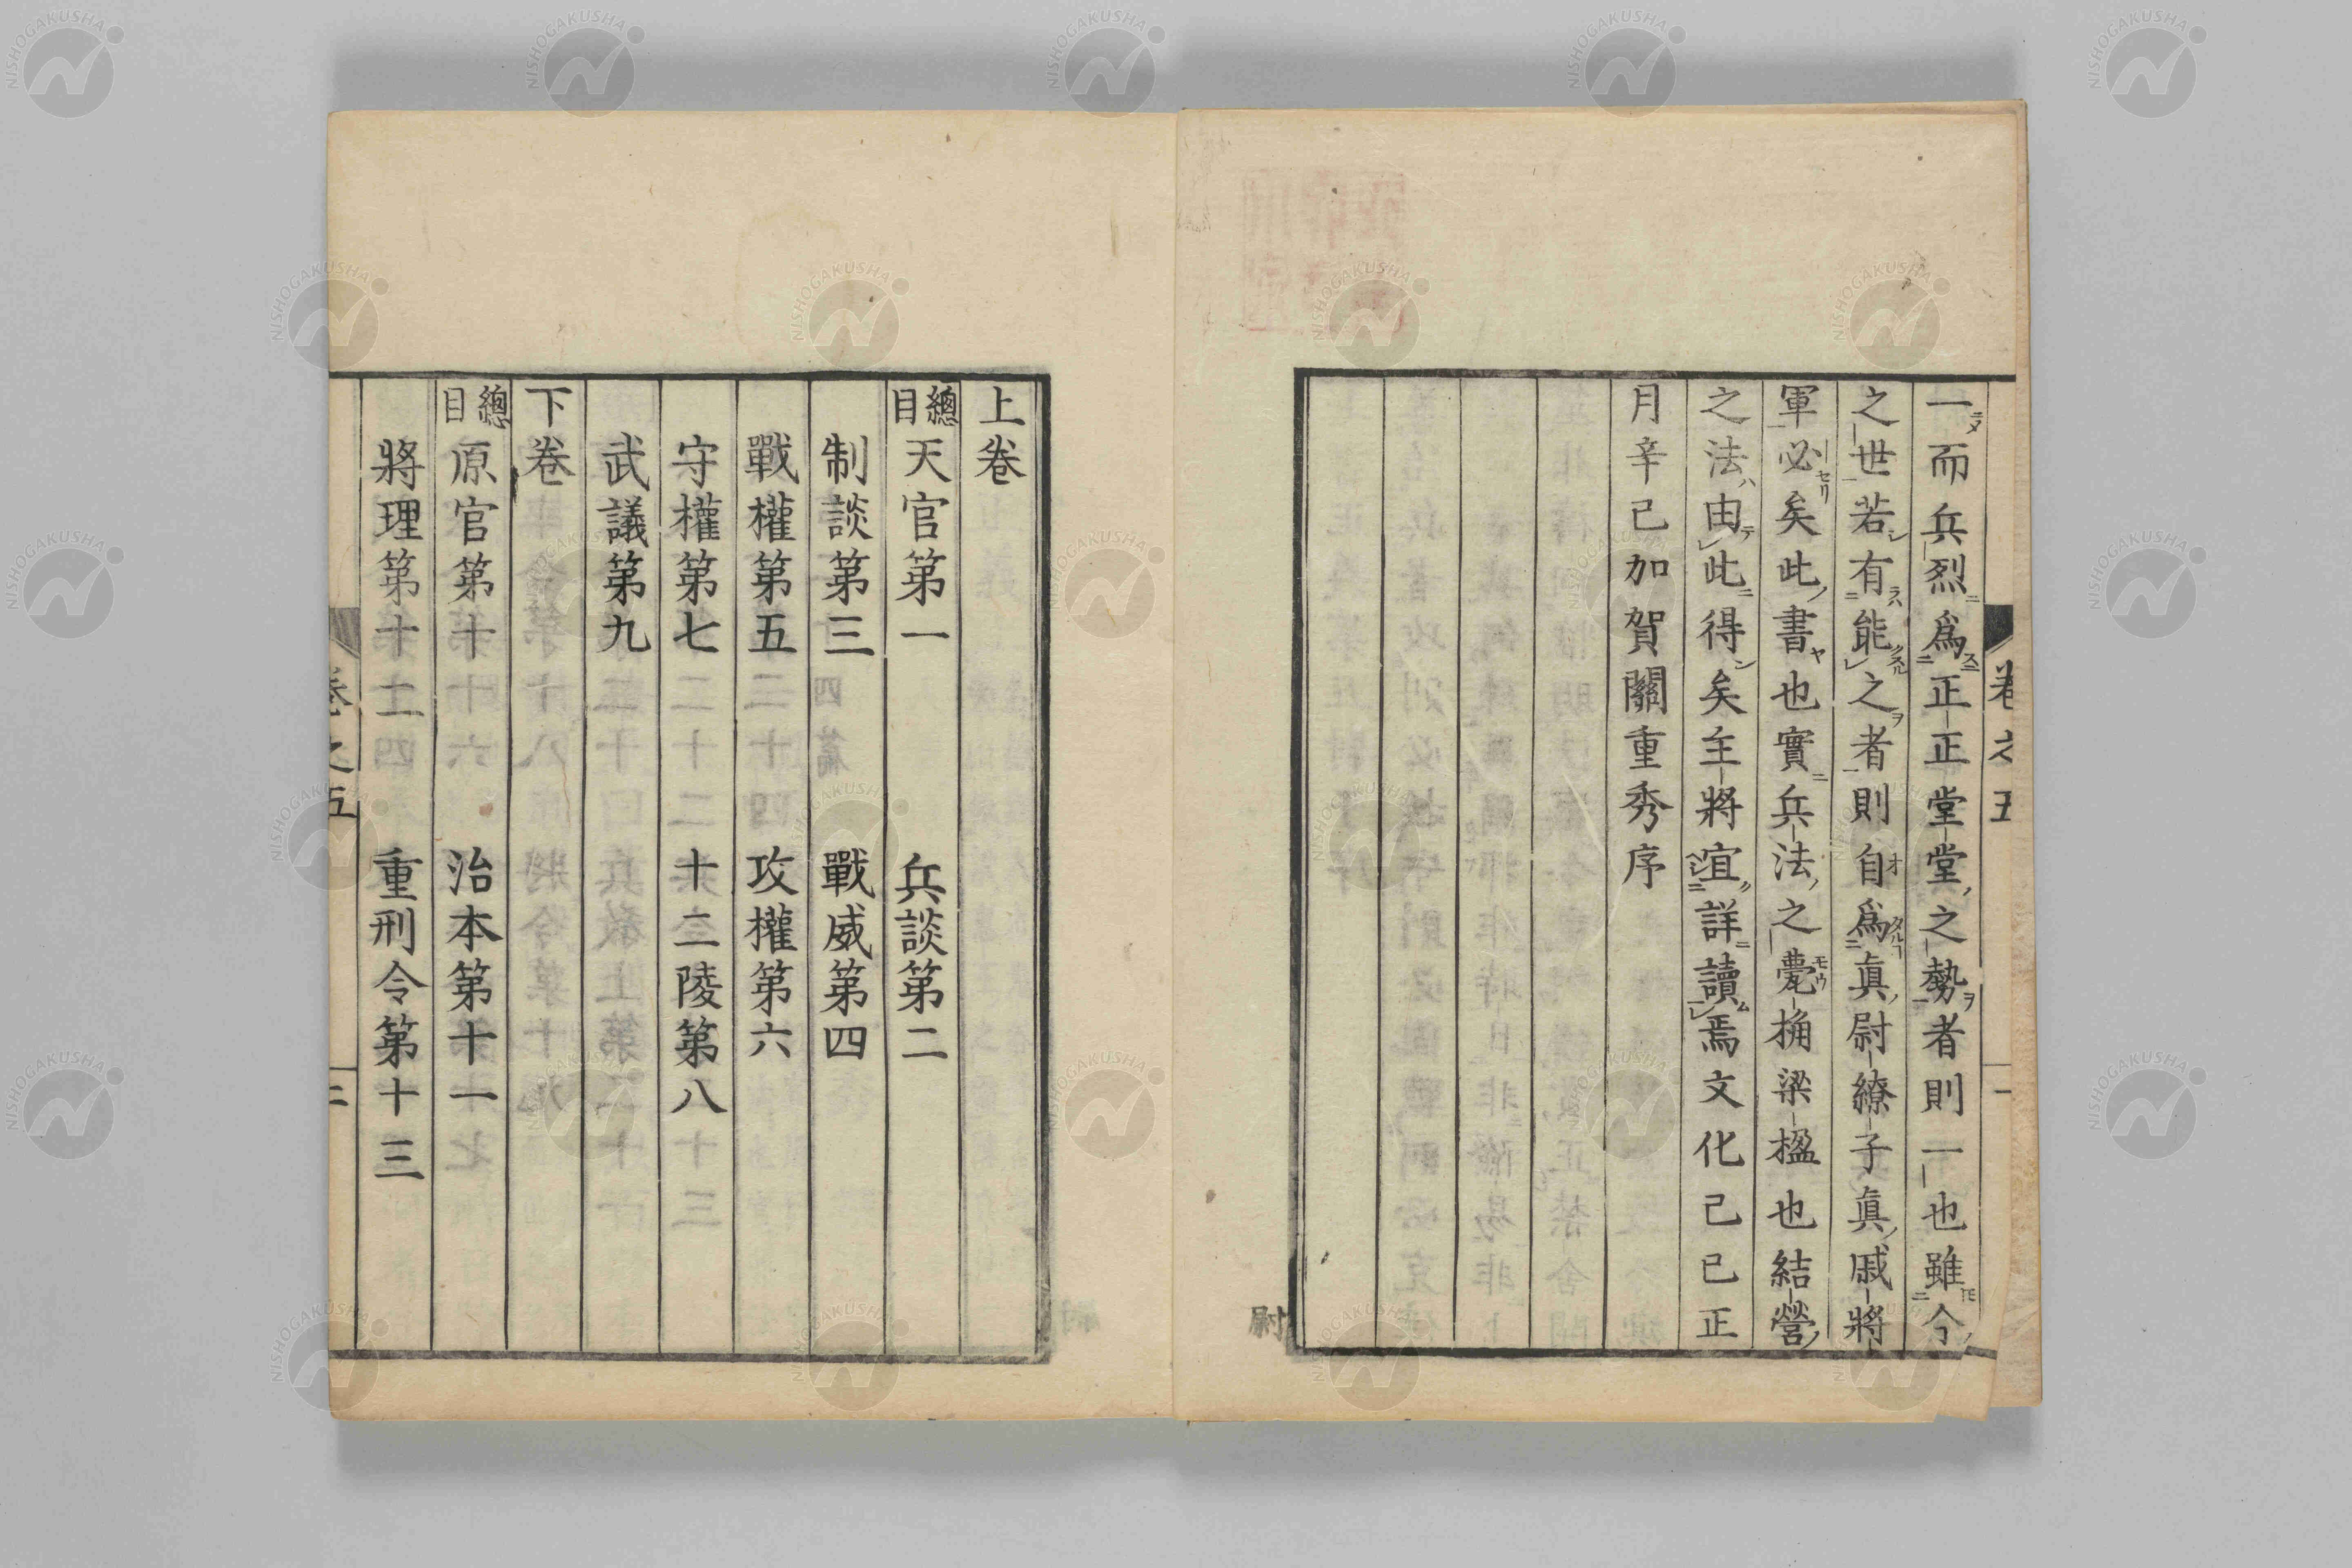 一而兵烈爲正正堂堂之勢者則一也雖今
之世若有能之者則自爲眞尉繚子眞戚將
軍必矣此書也實兵法之甍桷梁楹也結營
之法由此得矣主將宜詳讀焉文化己巳正
月辛己加賀關重秀序
卷之五
一
尉
上卷
總目 天官第一 兵談第二
制談第三 戰威第四
戰權第五 攻權第六
守權第七 十二陵第八
武議第九
下卷
總目 原官第十 治本第十一
將理第十二 重刑令第十三
卷之五
二
NISHOGAKUSHA